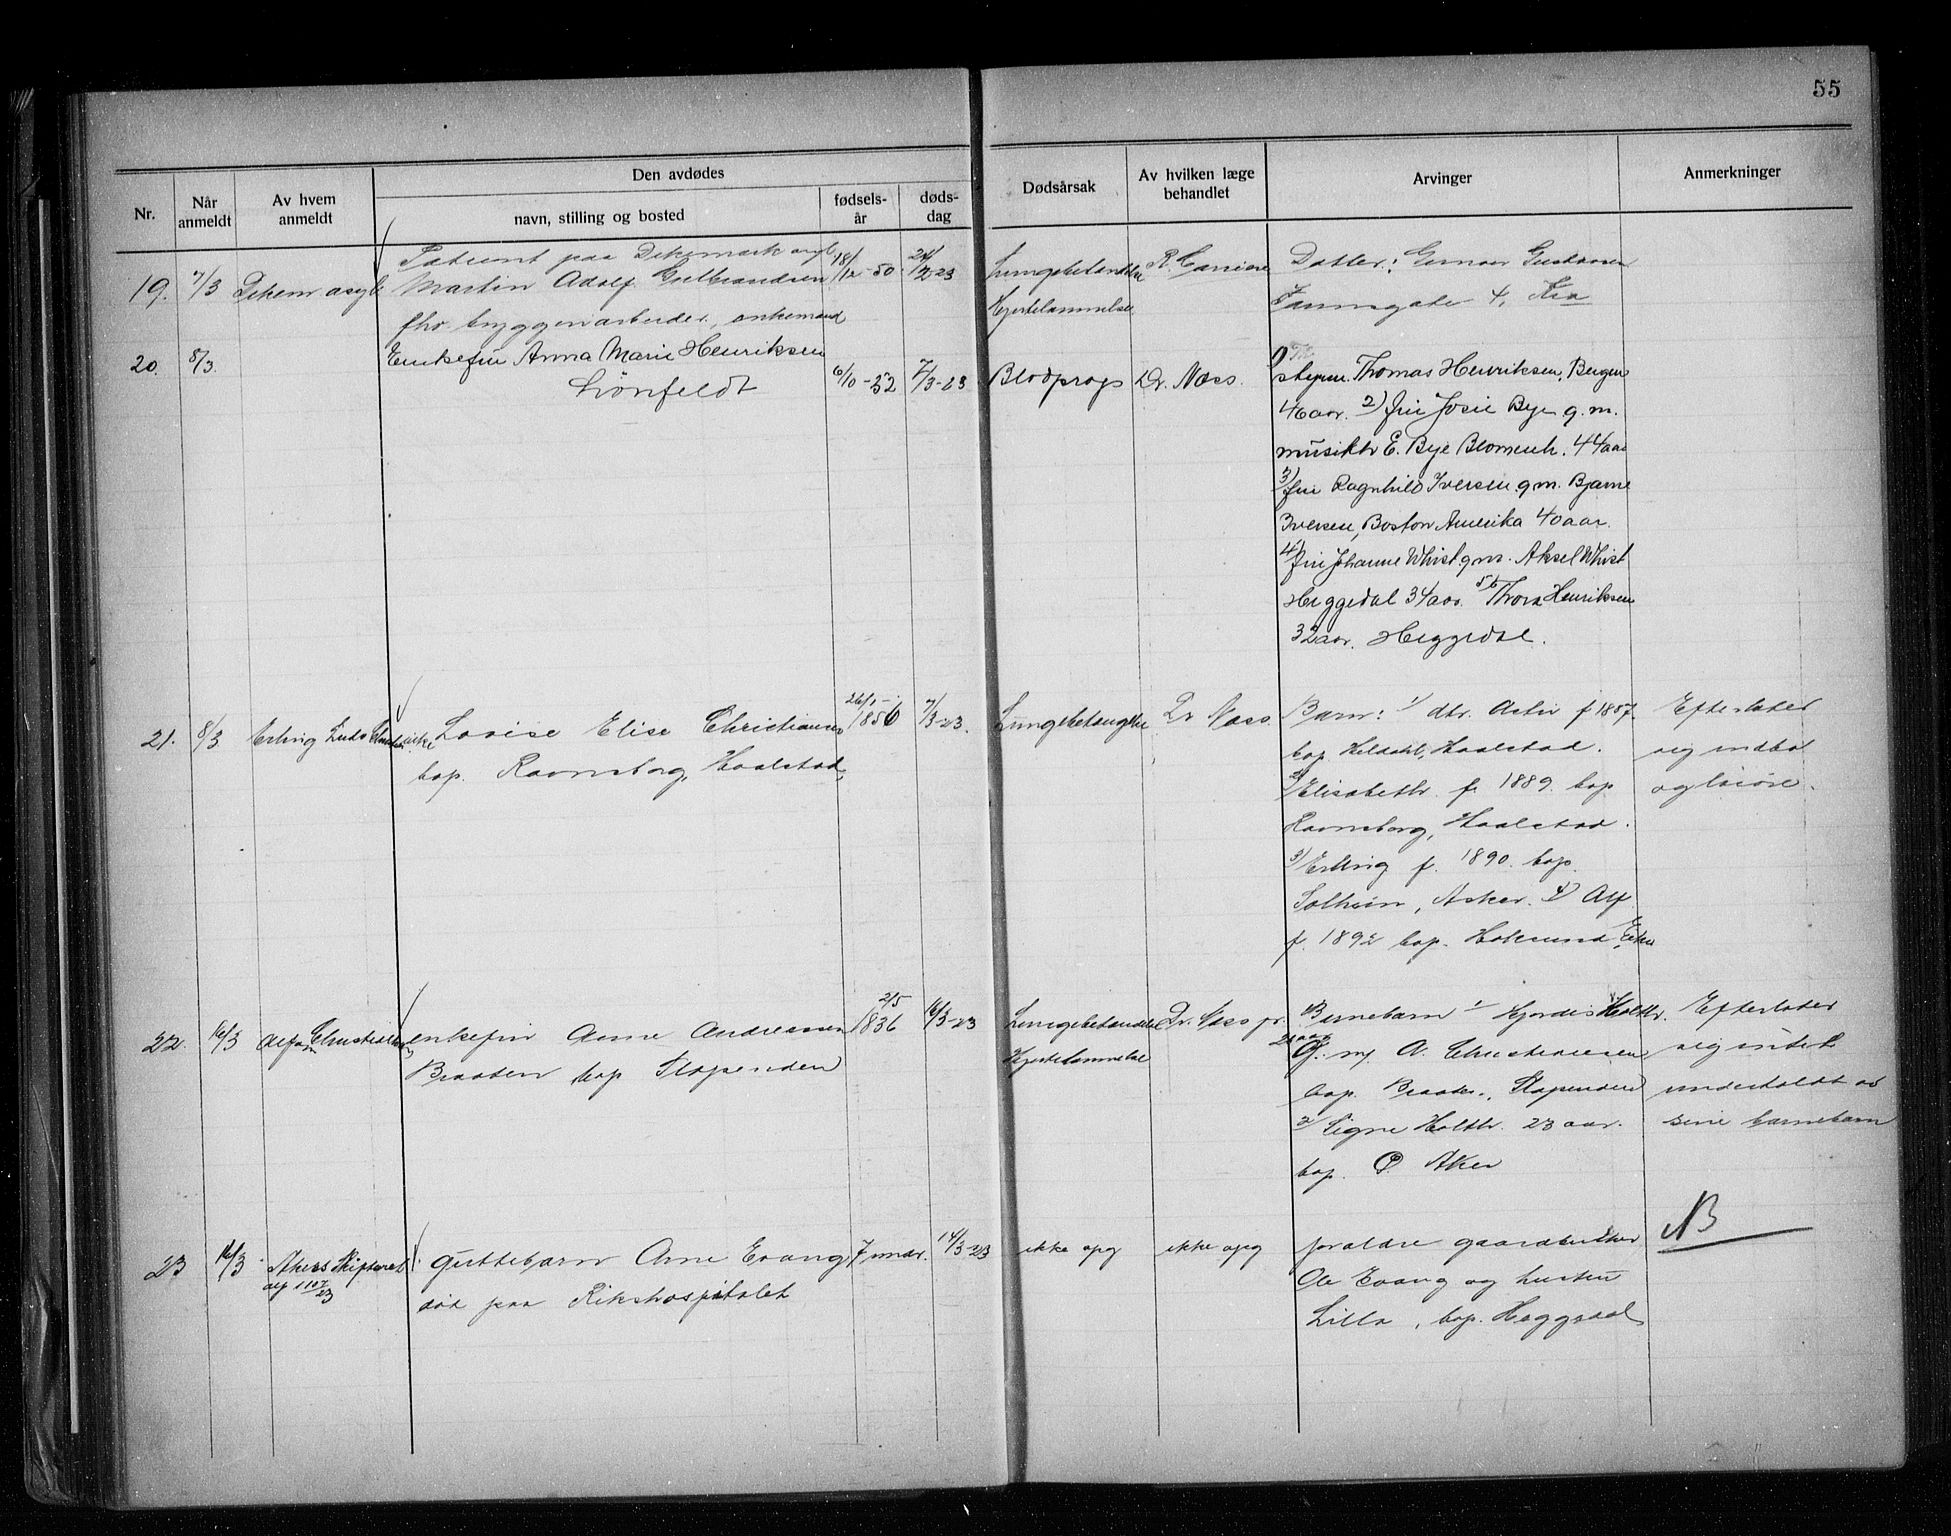 55
Den avdødes
Nr.
Når anmeldt
Av hvem anmeldt
navn, stilling og bosted
fødselsår
dødsdag
Dødsårsak
Av hvilken læge behandlet
Arvinger
Anmerkninger
19. 7/3
Patient paa Dikemark asyl
Martin Adolf Gulbrandsen
fhv. bryggeriarbeider, enkemand
18/12-50
Lungebetændelse
Hjertelammelse
Datter:
4, Kra
20. 8/3.
Enkefru Anna Marie Henriksen
Lønfeldt
6/10-52
7/3-23
Blodprops
Dr. Næss.
1)
styrm. Thomas Henriksen, Bergen
46 aar. 2) fru Josie Bye g.m.
musiktr E. Bye Blomenh. 44 aar
3) fru Ragnhild Iversen g.m. Bjarne
Iversen, Boston Amerika 40 aar.
4) fru Johanne Whist g.m. Aksel Whist
Heggedal 34 aar. 5) Thora Henriksen
32 aar. Heggedal.
21. 8/3
Erling
Lovise Elise Christiansen
bop. Ravnsborg, Hvalstad,
1856
7/3-23.
Lungebetændelse
Dr Næss.
Barn: 1/ dtr. f 1887
bop. Hvalstad.
2) Elisabeth f. 1889. bop
Ravnsborg, Hvalstad.
3) Erling f. 1890. bop.
Solheim, Asker. 4) Alf
f. 1892 bop. Hokksund, Eker
Efterlater
sig indbo
og løsøre.
22.
enkefru Anne Andressen
Braaten bop Slependen
2/5
1836
Lungebetændelse
Hjertelammelse
Dr. Næss jr.
Barnebarn 1/ Hjordis Holth.
G. m. A. Christiansen
bop. Braaten, Slependen
2/ Signe Holth. 23 aar.
bop. Ø. Aker
Efterlater
sig intet
underholdt av
sine barnebarn
23
Akers skifteret
1107/23
guttebarn Arne Evang
død paa Rikshospitalet
7 mndr.
14/3-23
ikke opg
ikke opg
forældre gaardbruker
Ole Evang og hustru
Lilla, bop. Heggedal
NB